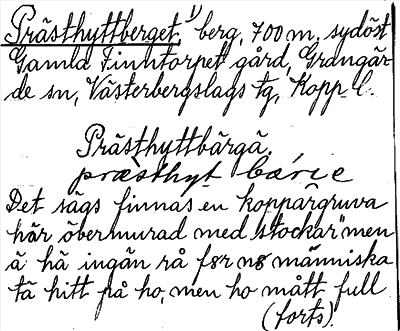 Prästhyttberget,¹⁾ berg, 700 m. sydöst
Gamla Finntorpet gård, Grangär-
de sn, Västerbergslags tg, Kopp. l.
Prästhyttbärgä.
præsthyt bærie
Det sägs finnas en koppårgruva
här övermurad med stockar "men
ä hä ingän rå får nå människa
tä hitt på ho, men ho mått full
(forts).